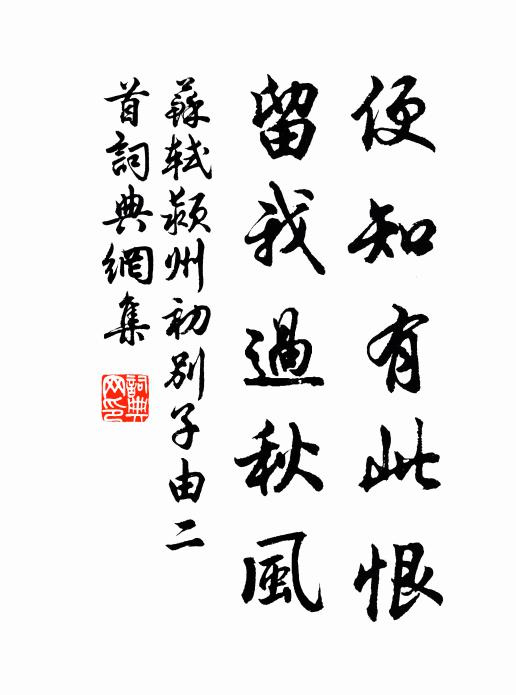 便知有此恨
留我過秋風
蘇軾潁州初別子由二
首詞典網集
詞典
网印